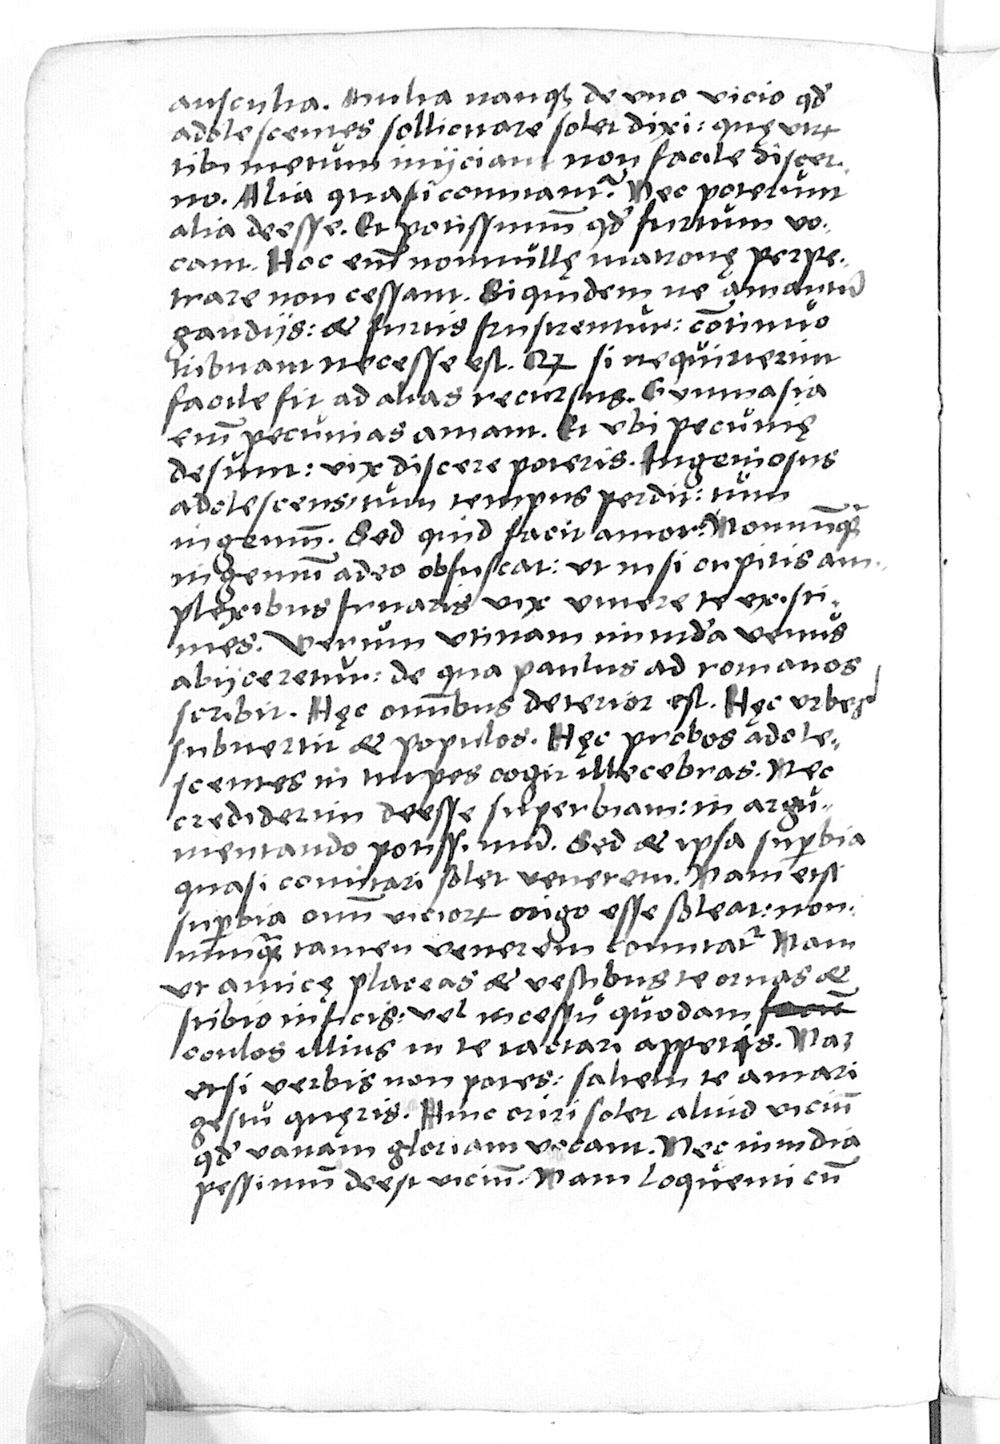 ausculta. Multa nanq; de vno vicio qđ
adolescentes sollicitare solet dixi: quę vtrũ
tibi metum inijciant non facile discer-
no. Alia quasi comitant᷑. Nec poterunt
alia deesse. Et potissimũ qđ furtum vo-
cant. Hoc em̃ nonnullę matronę perpe-
trare non cessant. Siquidem ne amantiũ
gaudijs: & furtis frustrentur: cõtinuo
tribuant necesse est. Q̃ si nequiuerint
facile fit ad alias recursus. Gymnasia
em̃ pecunias amant. Et vbi pecunię
desunt: vix discere poteris. Ingeniosus
adolescens, tum tempus perdit: tum
ingeniũ. Sed quid facit amor? Nonnunq̃
ingeniũ adeo obfuscat: vt nisi cupitis am-
plexibus fruaris vix viuere te existi-
mes. Verum vtinam immũda venus
abijceretur: de qua paulus ad romanos
scribit. Hęc omĩbus deterior est. Hęc vrbes
subuertit & populos. Hęc probos adole-
scentes in turpes cogit illecebras. Nec
crediderim deesse superbiam: in argu-
mentando potissimũ. Sed & ipsa supbia
quasi comitari solet venerem. Nam etsi
supbia omĩ vicioꝝ origo esse soleat: non-
nunq̃ tamen venerem comitat᷑ Nam
vt amicę placeas & vestibus te ornas &
stibio inficis: vel incessu quodam
oculos illius in te iactari appetis. Naȝ
etsi verbis non potes: saltem te amari
gestu quęris. Hinc oriri solet aliud viciũ
qđ vanam gloriam vocant. Nec inuidia
pessimũ deest viciũ. Nam loquenti cũ